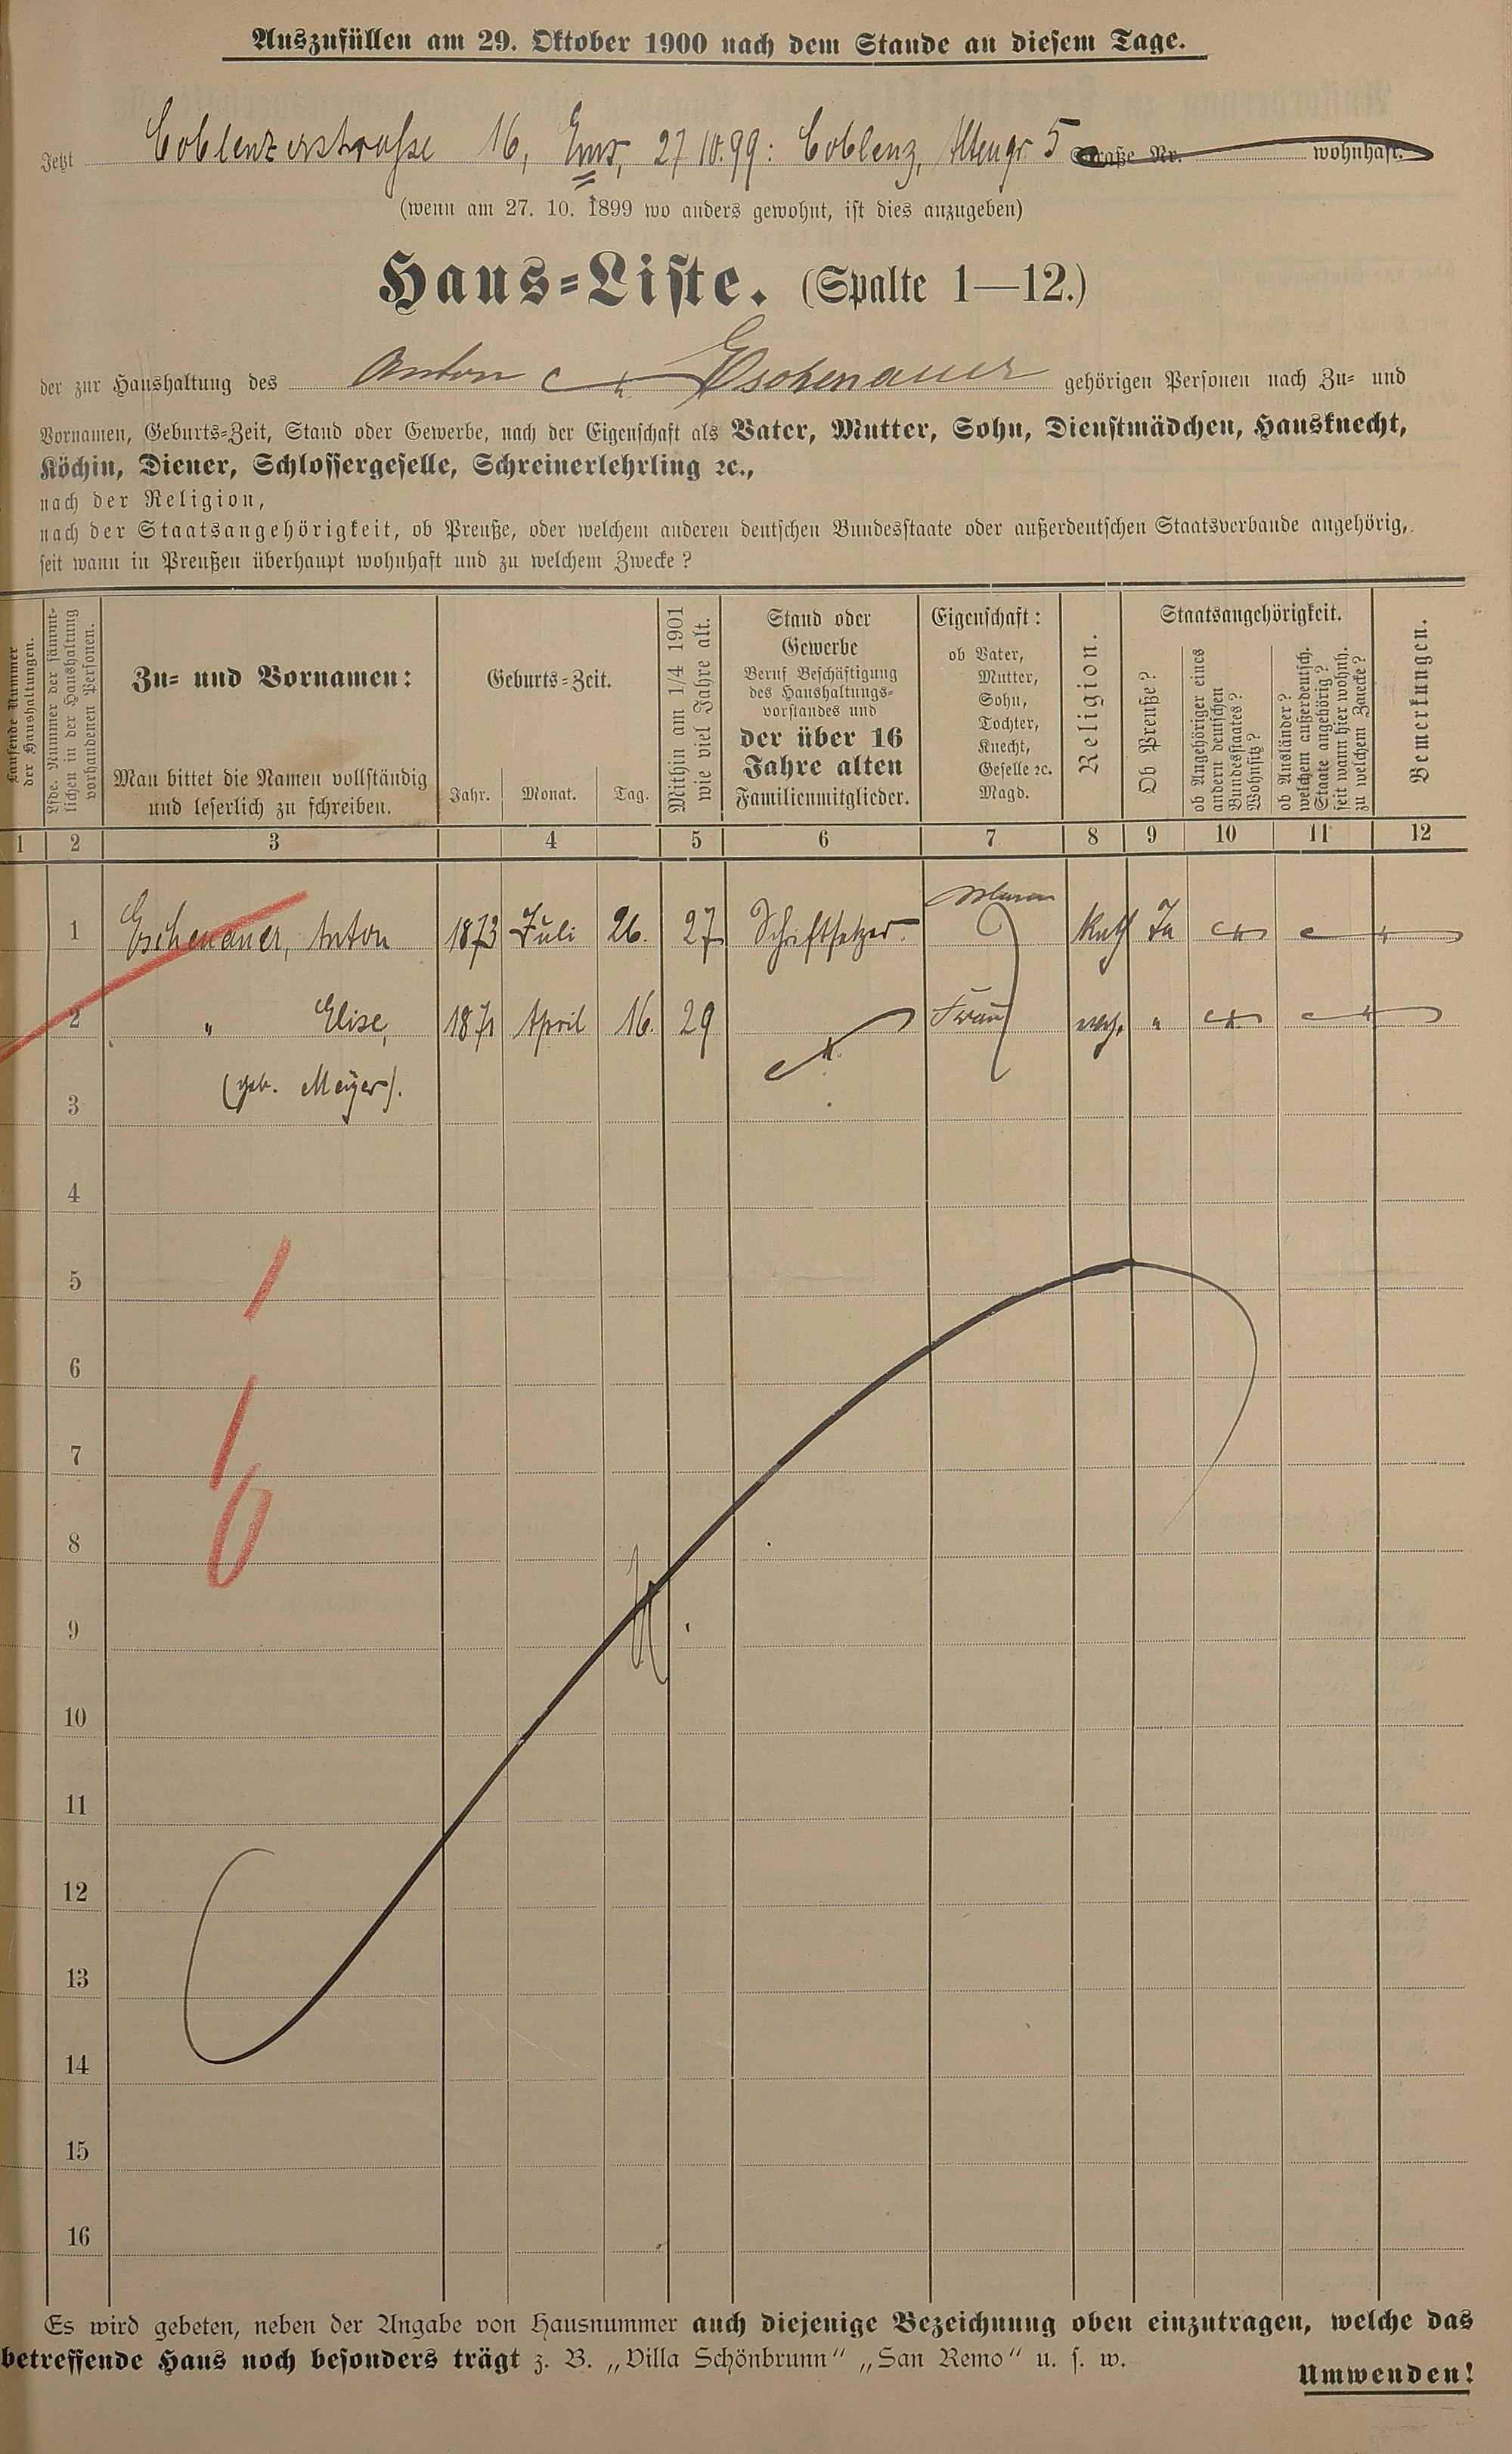 Auszufüllen am 29. Oktober 1900 nach dem Stande an diesem Tage.
Jetzt Coblenzerstraße 16, Ems, 27.10.99: Coblenz, Altengr. 5 Straße Nr. wohnhaft.
(wenn am 27. 10. 1899 wo anders gewohnt, ist dies anzugeben)
Haus-Liste. (Spalte 1—12.)
der zur Haushaltung des Anton Eschenauer gehörigen Personen nach Zu- und
Vornamen, Geburts-Zeit, Stand oder Gewerbe, nach der Eigenschaft als Vater, Mutter, Sohn, Dienstmädchen, Hausknecht,
Köchin, Diener, Schlossergeselle, Schreinerlehrling ꝛc.,
nach der Religion,
nach der Staatsangehörigkeit, ob Preuße, oder welchem anderen deutschen Bundesstaate oder außerdeutschen Staatsverbande angehörig,
seit wann in Preußen überhaupt wohnhaft und zu welchem Zwecke?
Laufende Nummer
der Haushaltungen.
Lfde. Nummer der sämmt-
lichen in der Haushaltung
vorhandenen Personen.
Zu- und Vornamen:
Man bittet die Namen vollständig
und leserlich zu schreiben.
Geburts-Zeit.
Jahr. Monat. Tag.
Mithin am 1/4 1901
wie viel Jahre alt.
Stand oder
Gewerbe
Beruf Beschäftigung
des Haushaltungs-
vorstandes und
der über 16
Jahre alten
Familienmitglieder.
Eigenschaft:
ob Vater,
Mutter,
Sohn,
Tochter,
Knecht,
Geselle ꝛc.
Magd.
Religion.
Staatsangehörigkeit.
Ob Preuße?
ob Angehöriger eines
andern deutschen
Bundesstaates?
Wohnsitz?
ob Ausländer?
welchem außerdeutsch.
Staate angehörig?
seit wann hier wohnh.
zu welchem Zwecke?
Bemerkungen.
1 2 3 4 5 6 7 8 9 10 11 12
1 Eschenauer, Anton 1873 Juli 26. 27 Schriftsetzer Mann Kath Ja
2 " Elise, 1871 April 16. 29 Frau "
3 (geb. Meyer).
4
5
6
7
8
9
10
11
12
13
14
15
16
Es wird gebeten, neben der Angabe von Hausnummer auch diejenige Bezeichnung oben einzutragen, welche das
betreffende Haus noch besonders trägt z. B. „Villa Schönbrunn“ „San Remo“ u. s. w.
Umwenden!